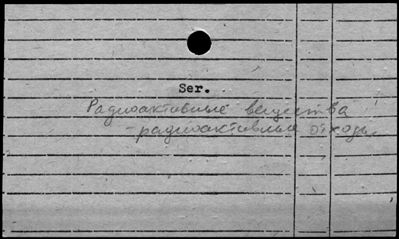 Ser.
Радиоактивные вещества
- радиоактивные отходы